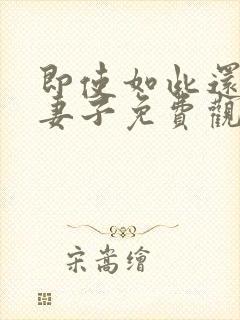 即使如此還
妻子免費觀
宋嵩繪